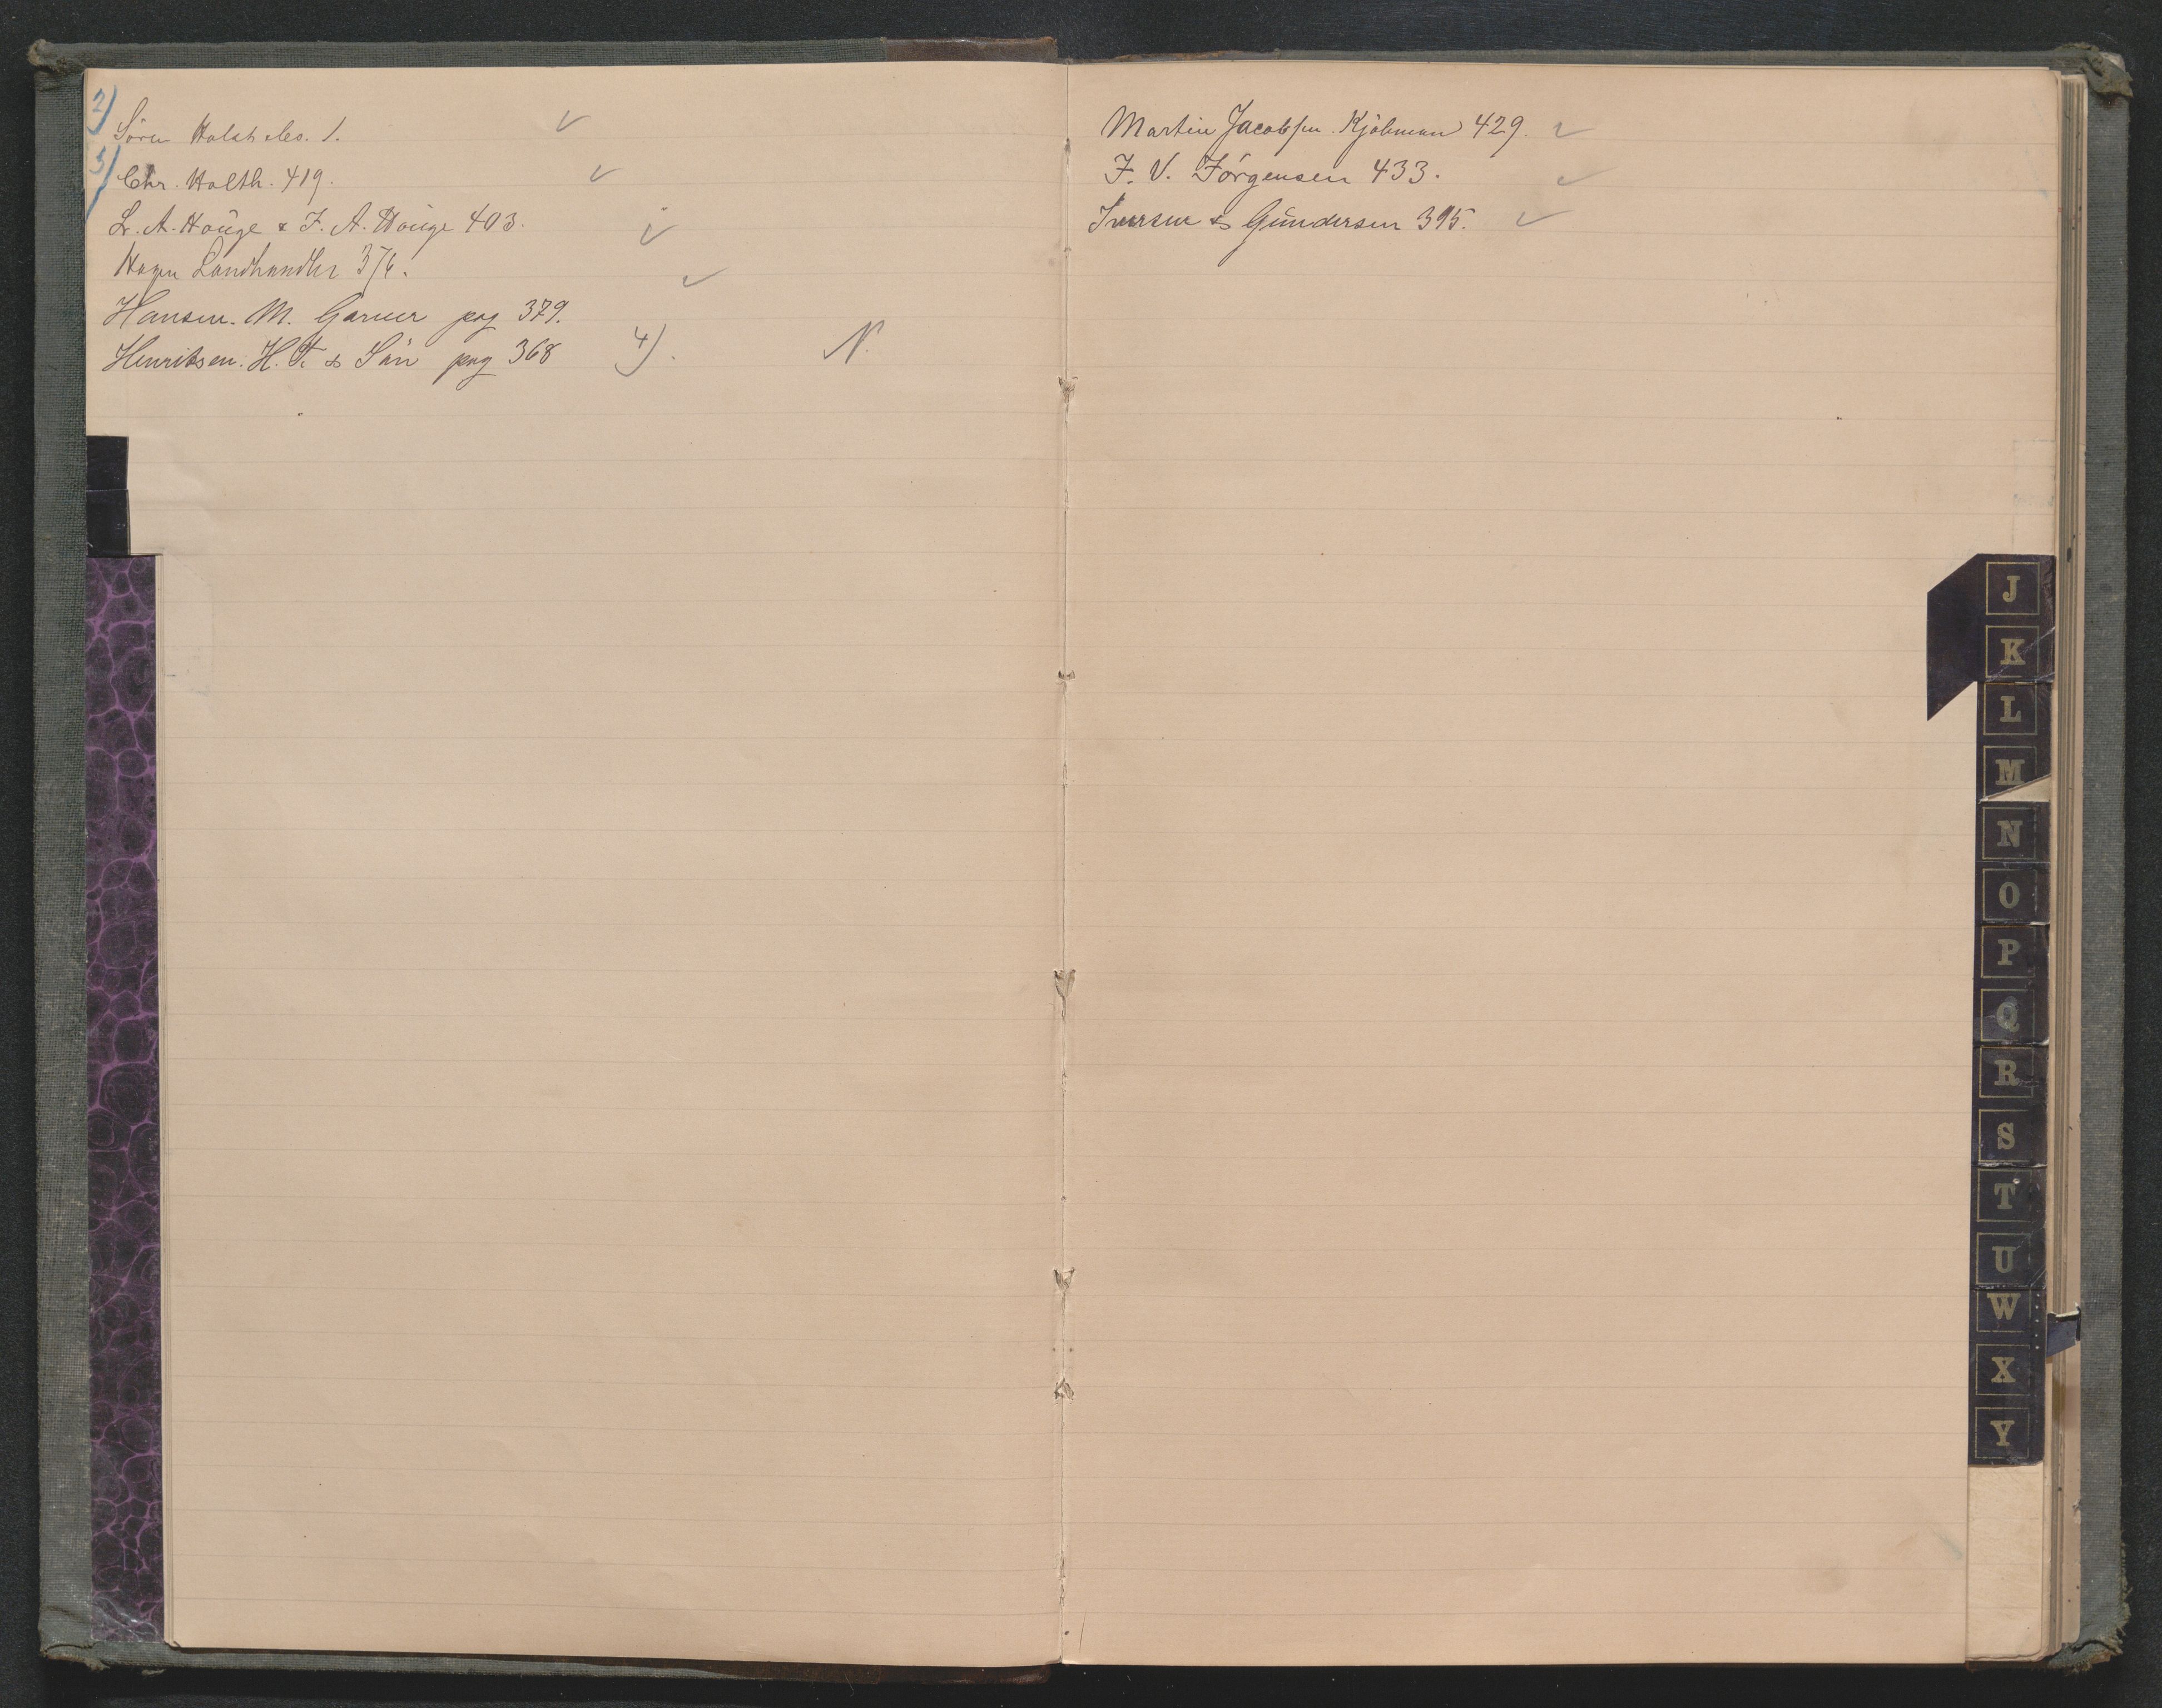 2) Sören Holst & Co. 1. ✓
3) Chr. Holth. 419. ✓
L. A. Houge & F. A. Houge 403. ✓
Hagen Landhandler 376. ✓
Hansen. M. Garver pag 379.
Henriksen. H. F. & Sön pag 368 4). N.
Martin Jacobsen. Kjöbman 429. ✓
J. V. Jörgensen 433. ✓
Iversen & Gundersen 395. ✓
J
K
L
M
N
O
P
Q
R
S
T
U
W
X
Y